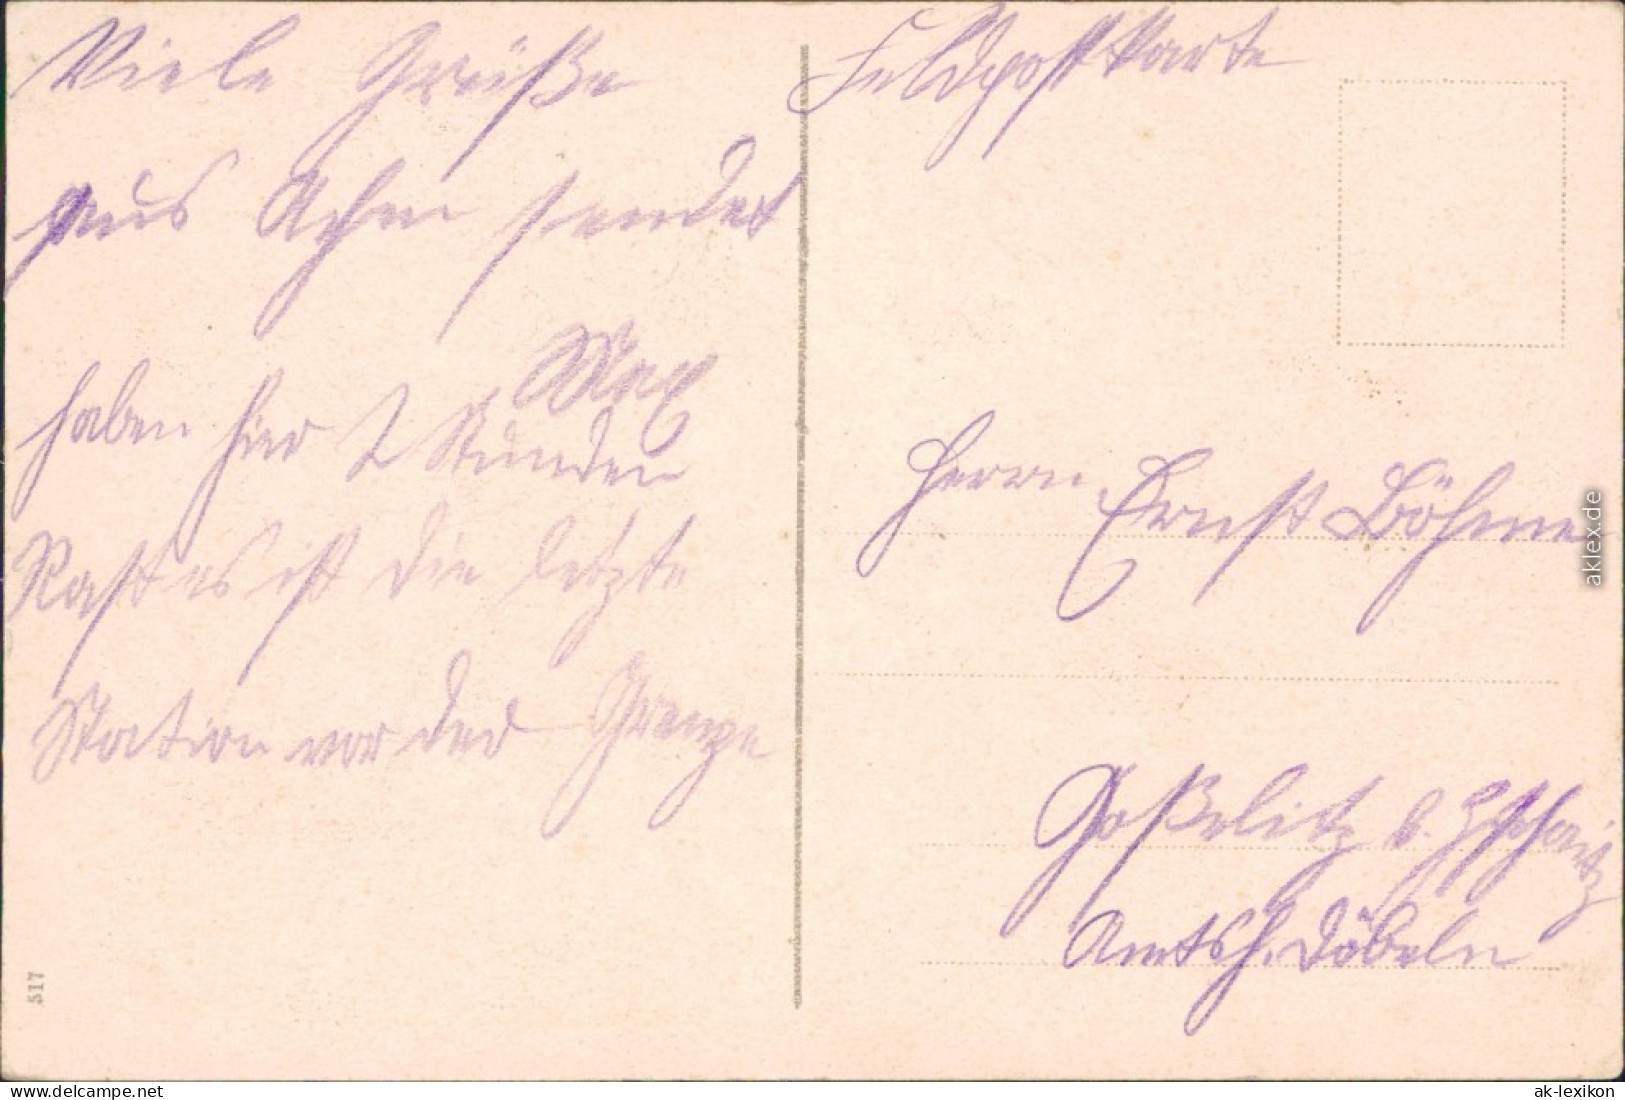 Viele Grüße
aus sendet
Max
haben hier 2 Stunden
Rast es ist die letzte
Station vor der Grenze
517
Feldpostkarte
Herrn Ernst Böhme
Goßelitz b. Zschaitz
Amtsh. Döbeln
aklex.de
www.delcampe.net
ak-lexikon